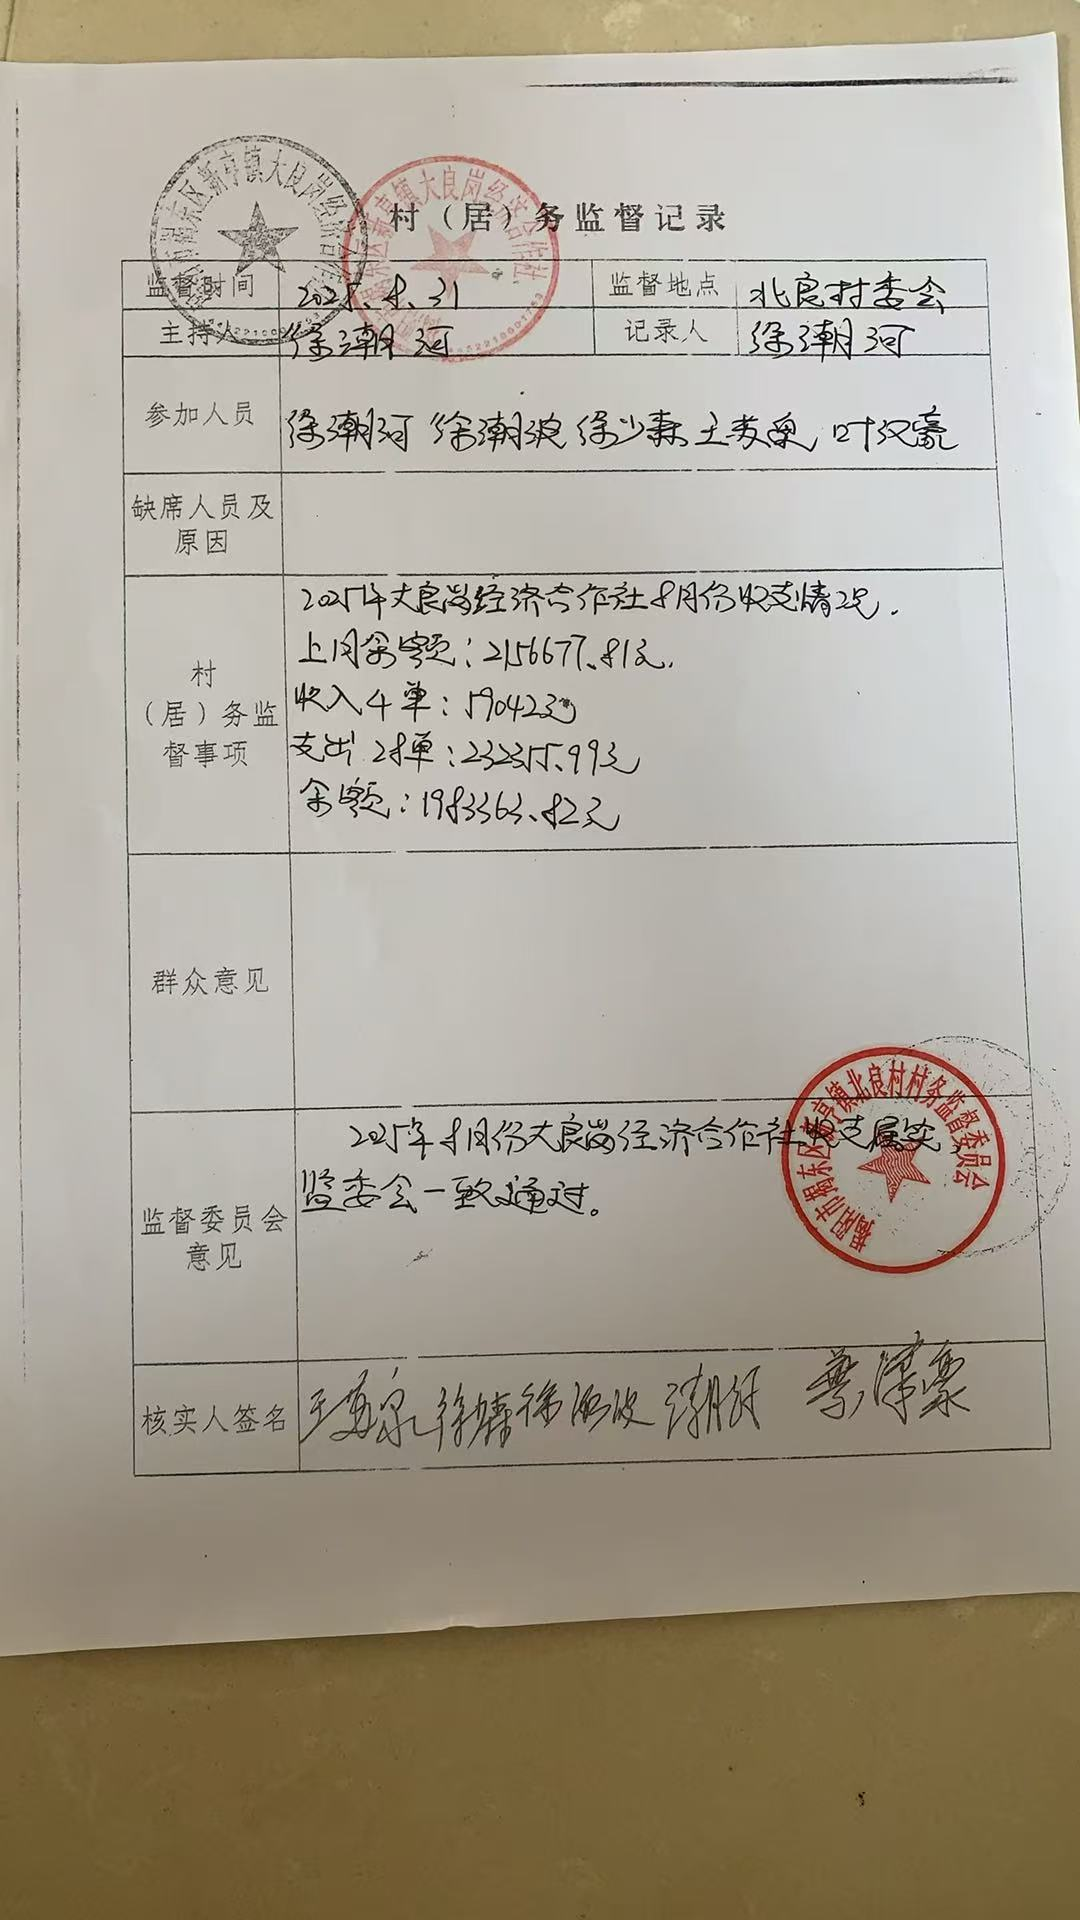 村（居）务监督记录
监督时间 2025、8、31 监督地点 北良村委会
主持人 徐潮河 记录人 徐潮河
参加人员 徐潮河 徐潮波 徐少森 叶汉豪
缺席人员及
原因
2025年大良岗经济合作社8月份收支情况.
上月余额：2156677、81元.
收入4单：59042元
支出28单：232355、99元
余额：1983363、82元
村
（居）务监
督事项
群众意见
2025年8月份大良岗经济合作社收支属实，
监委会一致通过。
监督委员会
意见
核实人签名
新亨镇大良岗经济合作社
新亨镇大良岗经济合作社
揭阳市揭东区新亨镇北良村村务监督委员会